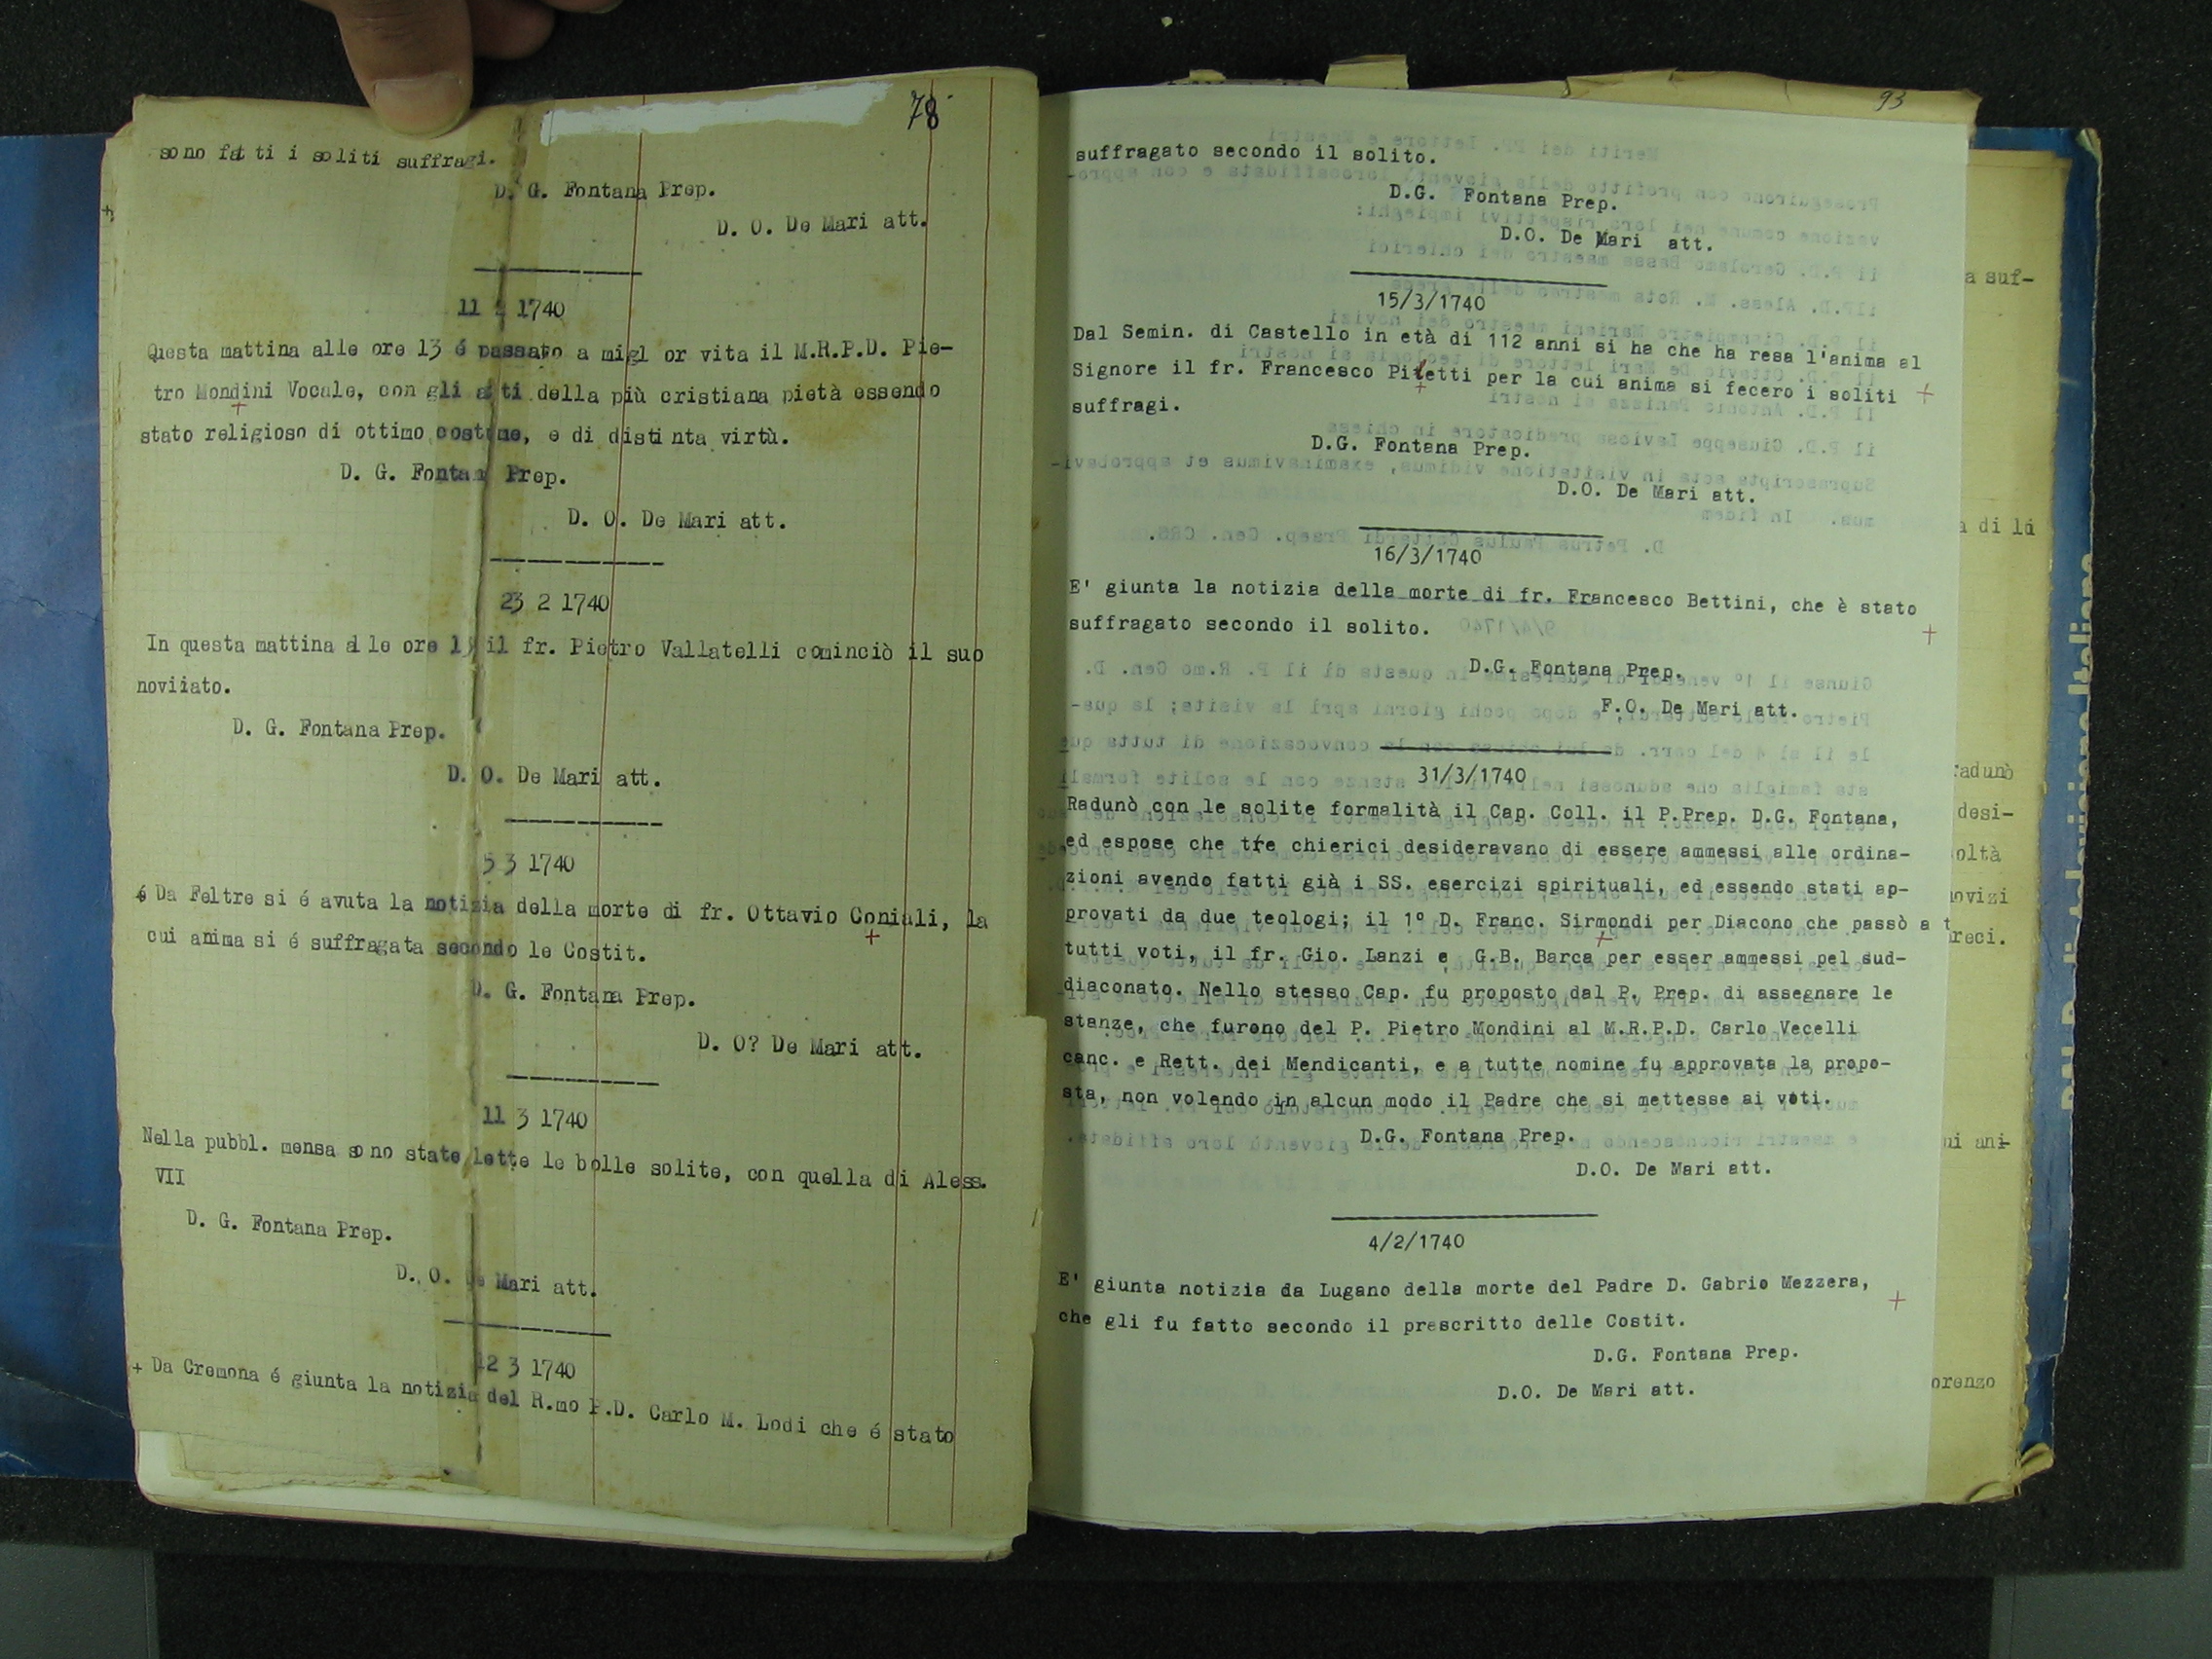 78
sono fat ti i soliti suffragi.
D. G. Fontana Prep.
D. O. De Mari att.
11 2 1740
Questa mattina alle ore 13 é passato a migl or vita il M.R.P.D. Pie-
tro Mondini Vocale, con gli atti della più cristiana pietà essendo
stato religioso di ottimo costume, e di disti nta virtù.
D. G. Fontan Prep.
D. O. De Mari att.
23 2 1740
In questa mattina al le ore il fr. Pietro Vallatelli cominciò il suo
noviiato.
D. G. Fontana Prep.
D. O. De Mari att.
5 3 1740
é Da Feltre si é avuta la notizia della morte di fr. Ottavio Coniali, la
cui anima si é suffragata secondo le Costit.
D. G. Fontana Prep.
D. O? De Mari att.
11 3 1740
Nella pubbl. mensa so no state lette le bolle solite, con quella di Aless.
VII
D. G. Fontana Prep.
D. O. De Mari att.
12 3 1740
+ Da Cremona é giunta la notizia del R.mo P.D. Carlo M. Lodi che é stato
93
suffragato secondo il solito.
D.G. Fontana Prep.
D.O. De Mari att.
15/3/1740
Dal Semin. di Castello in età di 112 anni si ha che ha resa l'anima al
Signore il fr. Francesco Piletti per la cui anima si fecero i soliti +
suffragi.
D.G. Fontana Prep.
D.O. De Mari att.
16/3/1740
E' giunta la notizia della morte di fr. Francesco Bettini, che è stato
suffragato secondo il solito. +
D.G. Fontana Prep.
F.O. De Mari att.
31/3/1740
Radunò con le solite formalità il Cap. Coll. il P.Prep. D.G. Fontana,
ed espose che tre chierici desideravano di essere ammessi alle ordina-
zioni avendo fatti già i SS. esercizi spirituali, ed essendo stati ap-
provati da due teologi; il 1º D. Franc. Sirmondi per Diacono che passò a t
tutti voti, il fr. Gio. Lanzi e G.B. Barca per esser ammessi pel sud-
diaconato. Nello stesso Cap. fu proposto dal P. Prep. di assegnare le
stanze, che furono del P. Pietro Mondini al M.R.P.D. Carlo Vecelli
canc. e Rett. dei Mendicanti, e a tutte nomine fu approvata la propo-
sta, non volendo in alcun modo il Padre che si mettesse ai voti.
D.G. Fontana Prep.
D.O. De Mari att.
4/2/1740
E' giunta notizia da Lugano della morte del Padre D. Gabrio Mezzera, +
che gli fu fatto secondo il prescritto delle Costit.
D.G. Fontana Prep.
D.O. De Mari att.
a suf-
a di là
radunò
desi-
oltà
novizi
reci.
ui ani-
orenzo